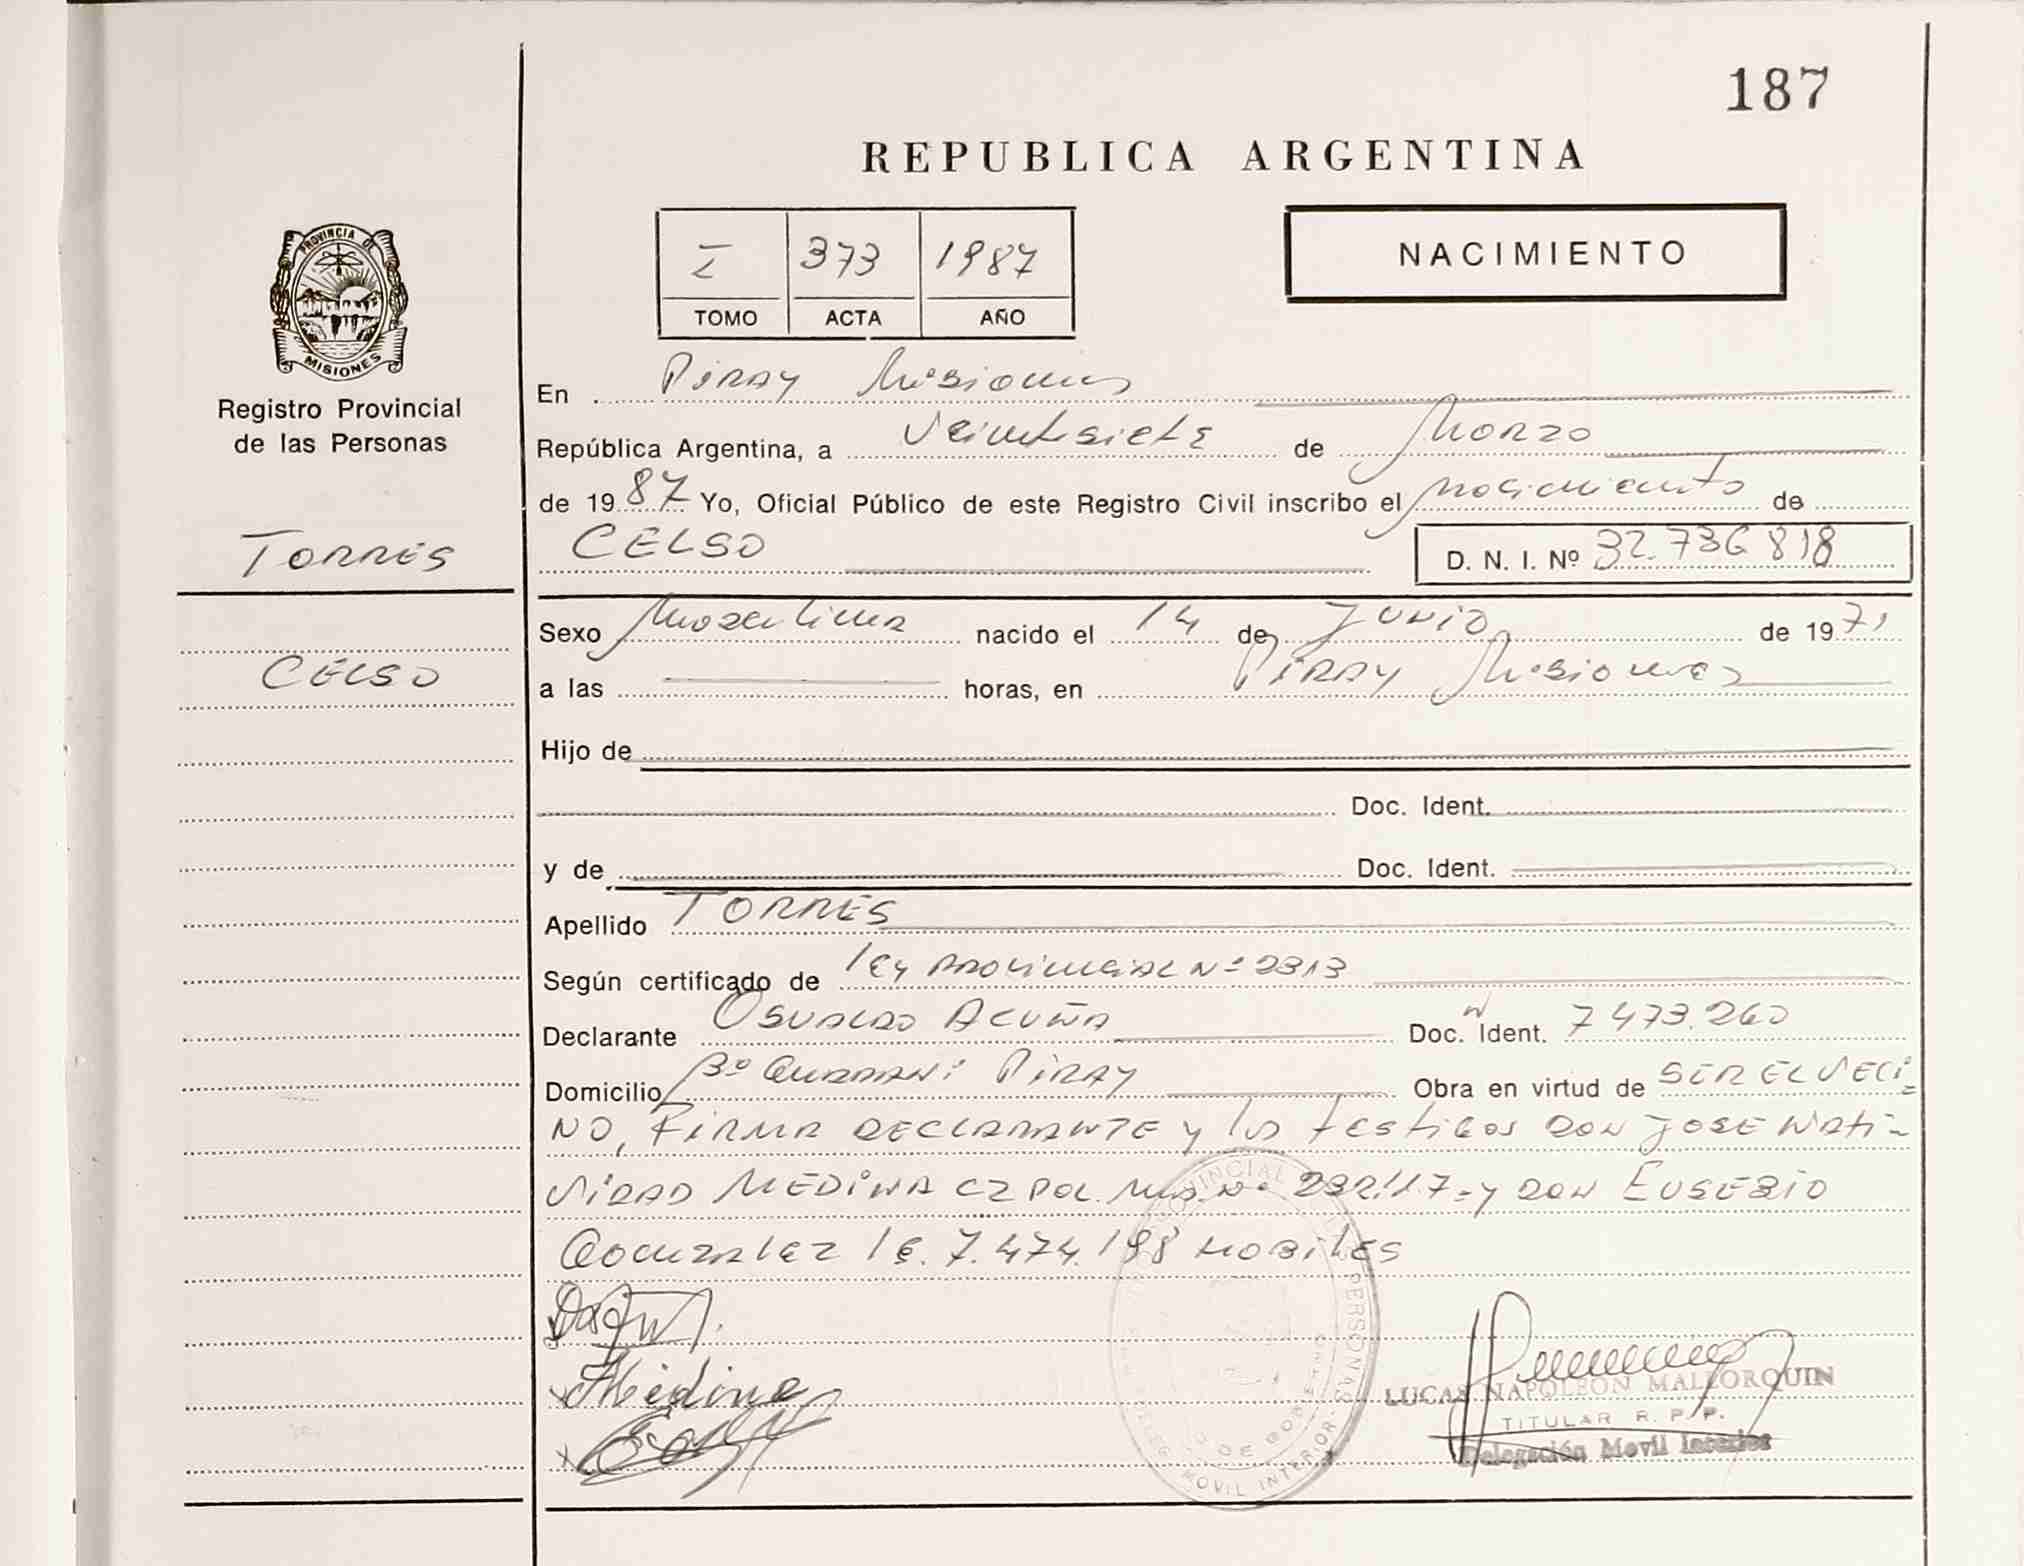 187
REPUBLICA ARGENTINA
PROVINCIA DE
MISIONES
Registro Provincial
de las Personas
I 373 1987
TOMO ACTA AÑO
NACIMIENTO
En Piray Misiones
República Argentina, a Veintisiete de Marzo
de 1987 Yo, Oficial Público de este Registro Civil inscribo el nacimiento de
TORRES
CELSO
D. N. I. Nº 32.736818
Sexo Masculino nacido el 14 de Junio de 1971
CELSO
a las horas, en Piray Misiones
Hijo de
Doc. Ident.
y de Doc. Ident.
Apellido TORRES
Según certificado de ley Provincial Nº 2313
Declarante Osvaldo Acuña Doc. Ident. 7473.260
Domicilio Bº Guarani Piray Obra en virtud de SER EL VECI-
NO, Firma DECLARANTE y los testigos Don JOSE Nati-
vidad MEDINA CI POL. Mis. Nº 232.117 - y Don EUSEBIO
Gonzalez le. 7.474.198 Hobiles
Medina
PROVINCIAL DE LAS PERSONAS
DE GOBIERNO
MOVIL INTERIOR
LUCAS NAPOLEON MALLORQUIN
TITULAR R. P. P.
Delegación Movil Interior